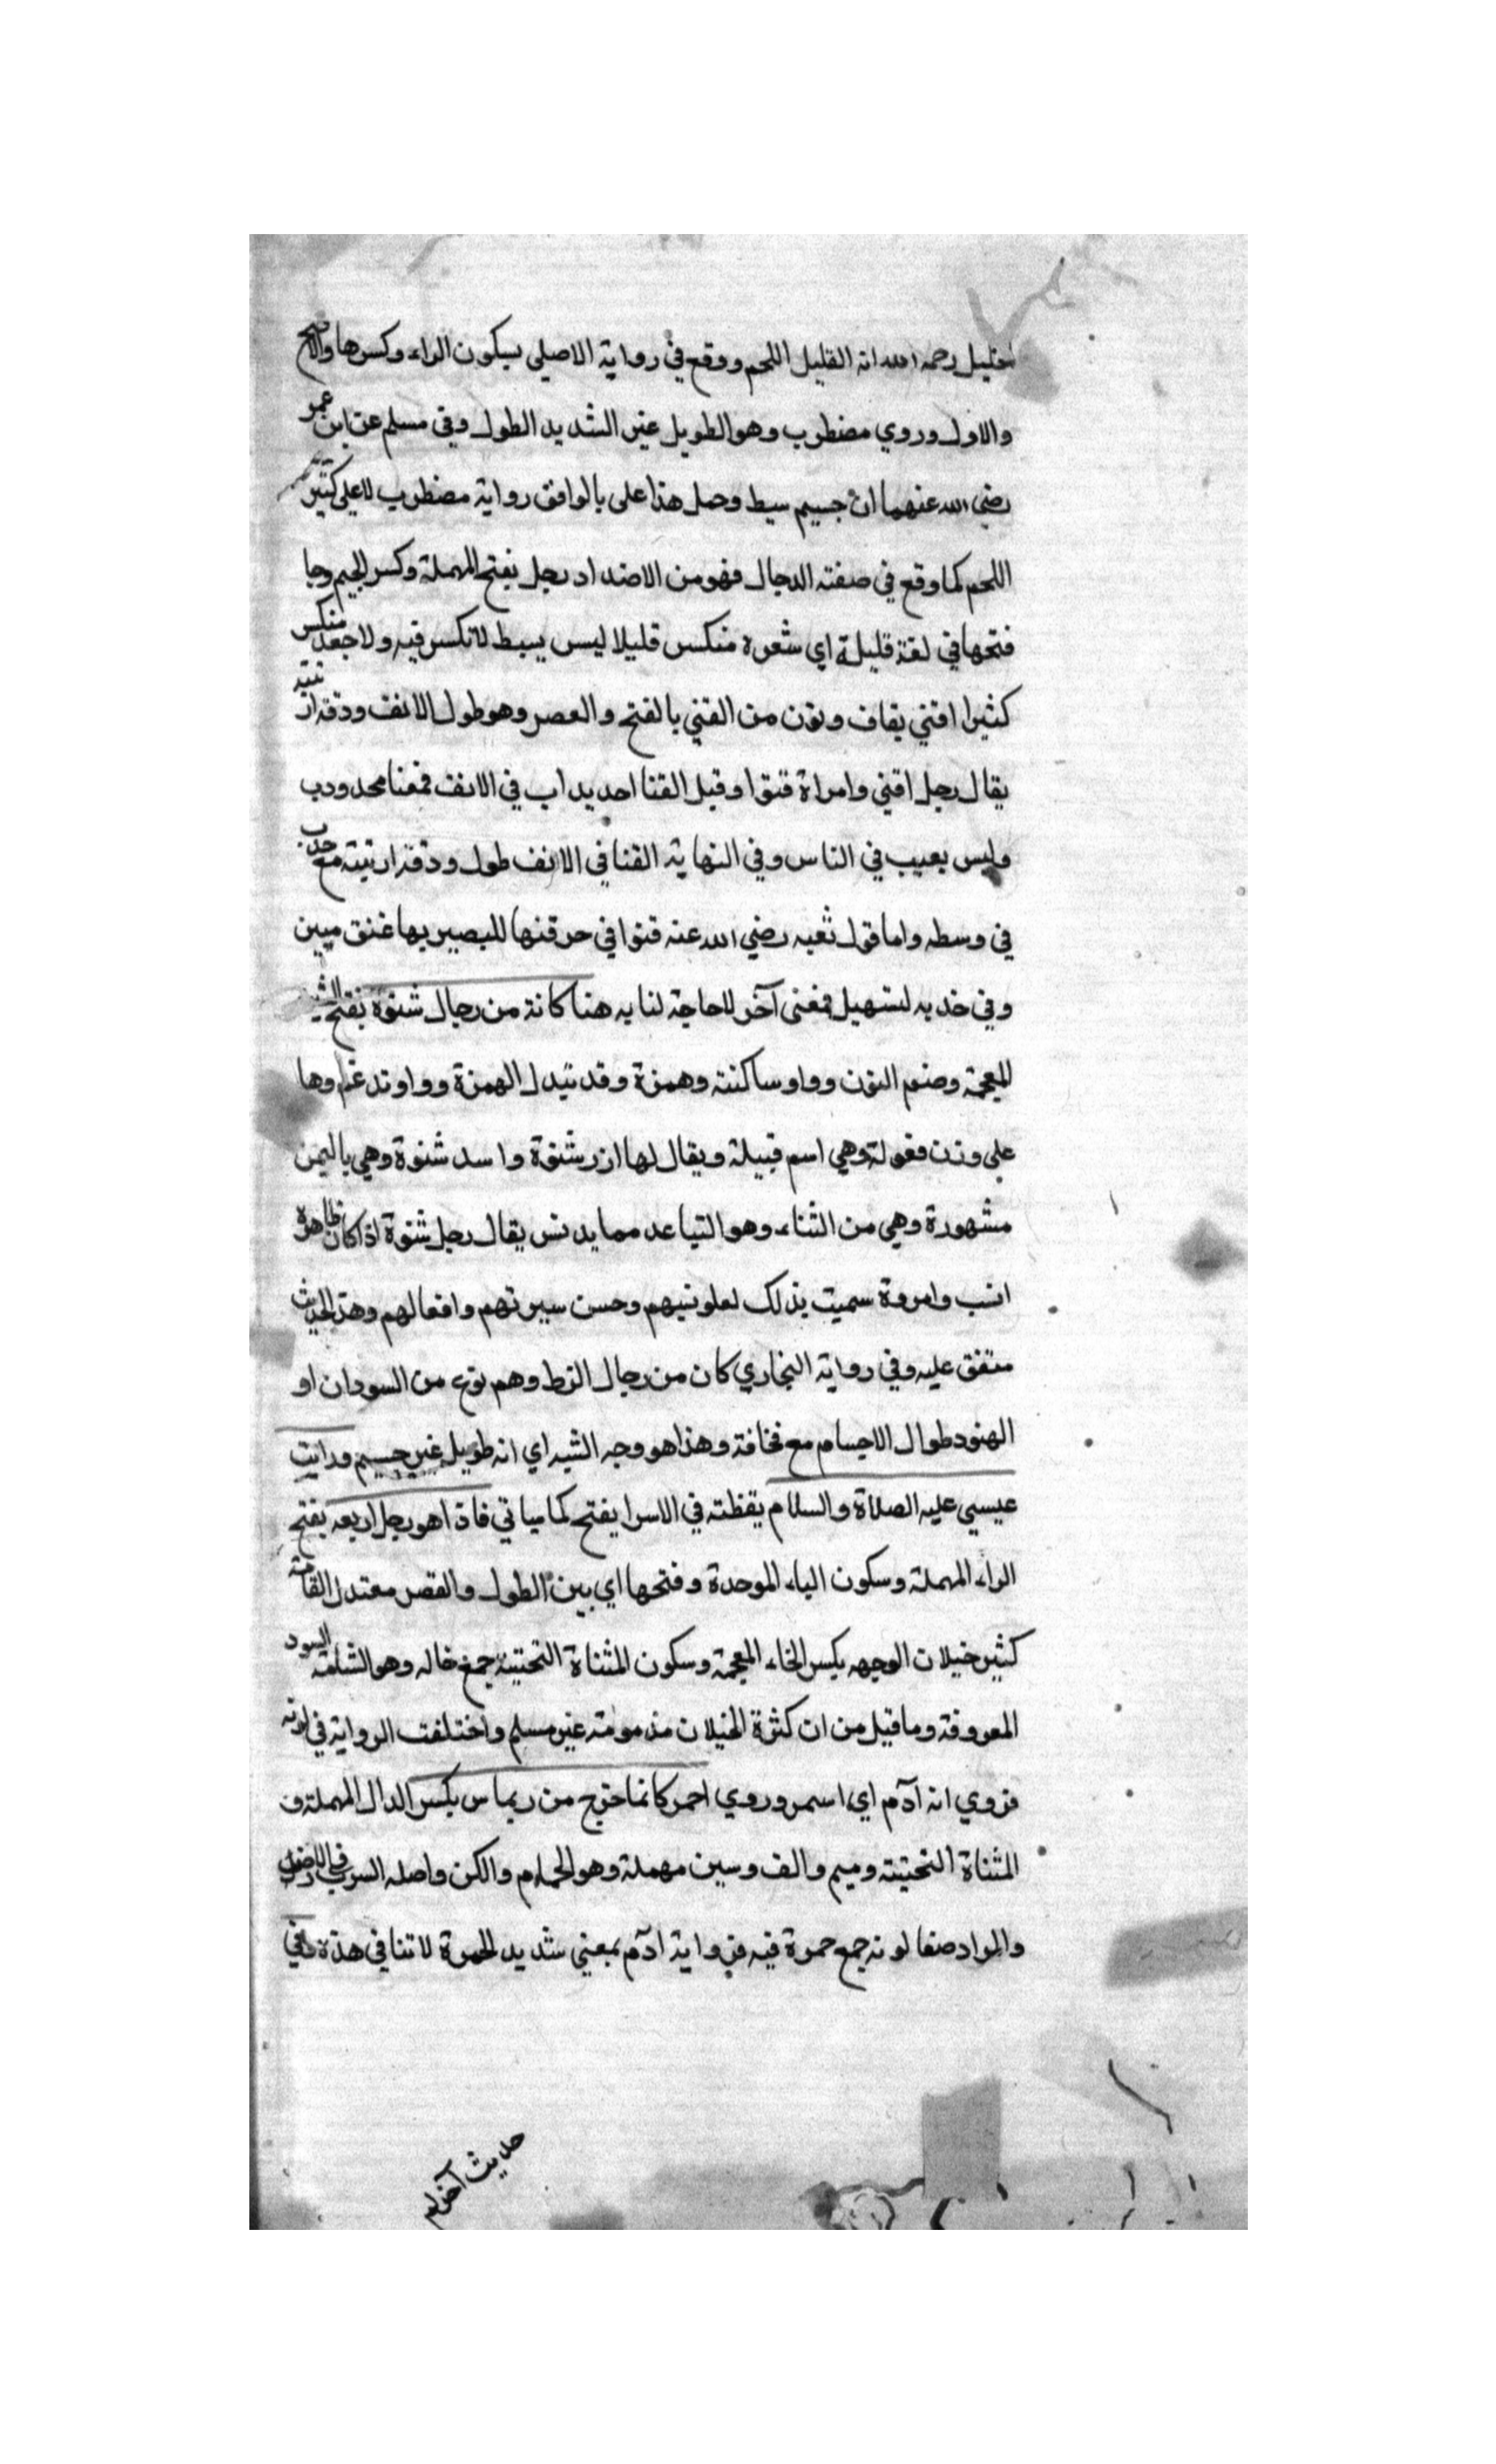 الخليل رحمه الله انه القليل اللحم ووقع في رواية الاصلي بسكون الراء وكسرها والاصح
والاول وروي مضطرب وهو الطويل غير الشديد الطول وفي مسلم عن ابن عمر
رضي الله عنهما انه جسيم سبط وحمل هذا على بالوافق رواية مضطرب لا على كثير
اللحم كما وقع في صفته الدجال فهو من الاضداد رجل بفتح المهملة وكسر الجيم وجا
فتحها في لغة قليلة اي شعره منكسر قليلا ليس بسبط لا تكسر فيه ولا جعد منكسر
كثيرا اقني بقاف ونون من القني بالفتح والعصر وهو طول الانف ودقه ارنبته
يقال رجل اقني وامراة قنوا وقيل القنا احديداب في الانف فمعنا محدودب
وليس بعيب في الناس وفي النهاية القنا في الانف طول ودقه ارنبته مع حدب
في وسطه واما قول ثعبه رضي الله عنه قنوا في حرقنها للبصير بها غنق مبين
وفي خديه لتسهيل فمعنى آخر لا حاجة لنا به هنا كانه من رجال شنوة بفتح الشين
المعجمة وضم النون وواو ساكنته وهمزة وقد تبدل الهمزة وواو تدغم وها
على وزن فعولة وهي اسم قبيلة ويقال لها ازر شنوة واسد شنوة وهي باليمن
مشهورة وهي من الشناء وهو التباعد مما يدنس يقال رجل شنوة اذا كان طاهر
انسب وامروة سميت بذلك لعلو نسبهم وحسن سيرتهم وافعالهم وهذا الحديث
متفق عليه وفي رواية البخاري كان من رجال الزط وهم نوع من السودان او
الهنود طوال الاجسام مع نحافة وهذا هو وجه الشبه اي انه طويل غير جسيم ورايت
عيسي عليه الصلاة والسلام يقظته في الاسرا يفتح كما سياتي فاذا هو رجل اربعه بفتح
الراء المهملة وسكون الباء الموحدة وفتحها اي بين الطول والقصر معتدل القامة
كثير خيلان الوجهه بكسر الخاء المعجمة وسكون المثناة التحتية جمع خاله وهو الشامة السود
المعروفة وما قيل من ان كثرة الخيلان مذمومته غير مسلم واختلفت الرواية في لونه
فروي انه آدم اي اسمر وروي احمر كانما خرج من ريماس بكسر الدال المهملة و
المثناة التحتيته وميم والف وسين مهملة وهو الحمام والكن واصله السرب في الارض
والمراد صفا لونه جمع حمرة فيه فرواية ادم بمعني شديد الحمرة لا تنافي هذه وفي
حديث آخر له